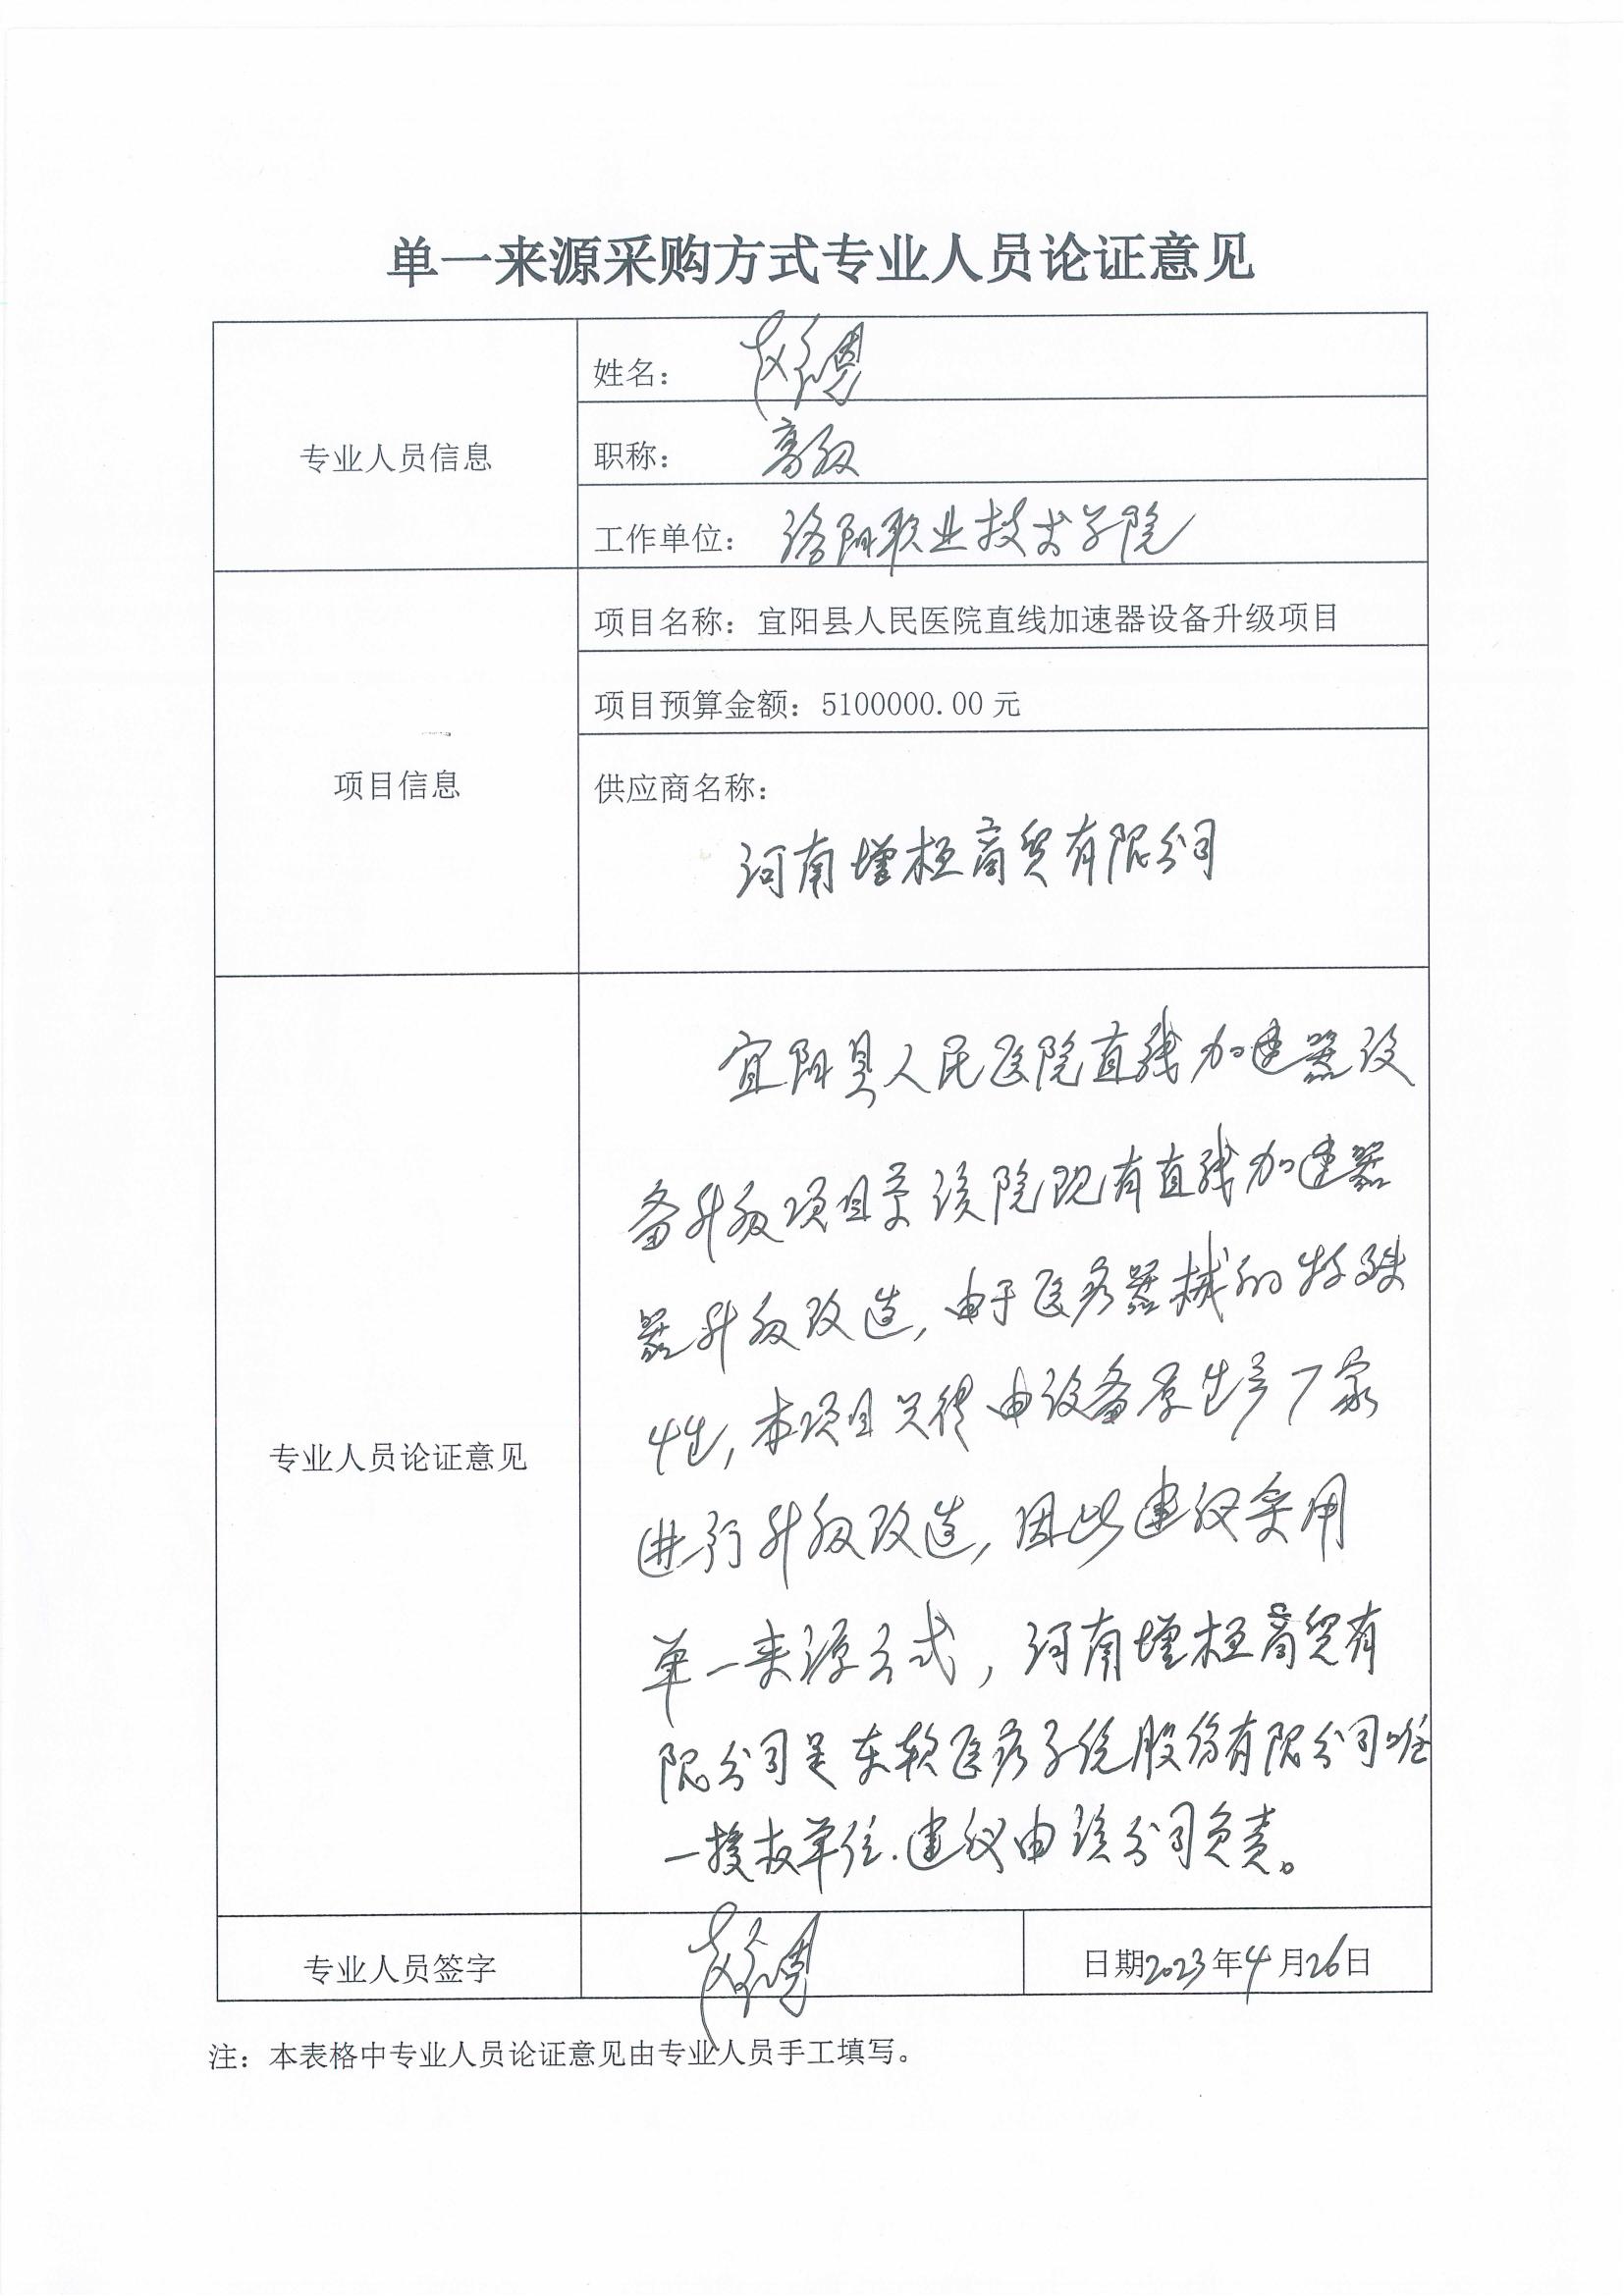 单一来源采购方式专业人员论证意见
专业人员信息
姓名：
职称： 高级
工作单位： 洛阳职业技术学院
项目信息
项目名称：宜阳县人民医院直线加速器设备升级项目
项目预算金额：5100000.00元
供应商名称：
河南增极商贸有限公司
专业人员论证意见
宜阳县人民医院直线加速器设
备升级项目是该院现有直线加速器
器升级改造，由于医疗器械的特殊
性，本项目只得由设备原生产厂家
进行升级改造，因此建议采用
单一来源方式，河南增极商贸有
限公司是东软医疗系统股份有限公司唯
一授权单位.建议由该公司负责。
专业人员签字
日期2023年4月26日
注：本表格中专业人员论证意见由专业人员手工填写。